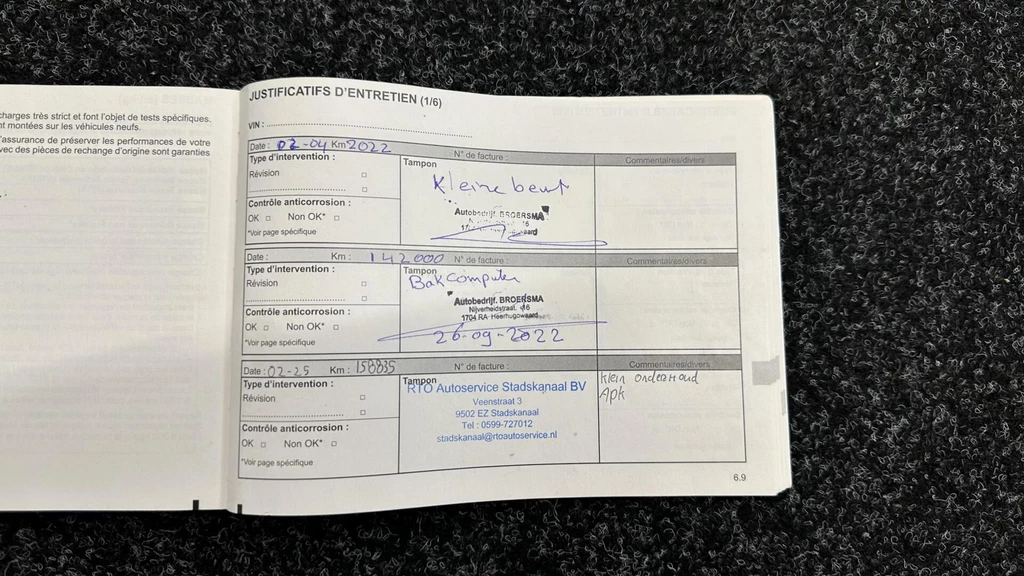 charges très strict et font l'objet de tests spécifiques.
nt montées sur les véhicules neufs.
'assurance de préserver les performances de votre
vec des pièces de rechange d'origine sont garanties
JUSTIFICATIFS D'ENTRETIEN (1/6)
VIN :
Date : 02-04 Km 2022 N° de facture : Commentaires/divers
Type d'intervention :
Révision
Contrôle anticorrosion :
OK Non OK*
*Voir page spécifique
Tampon
Kleine beurt
Autobedrijf. BROERSMA
Date : Km : 142000 N° de facture : Commentaires/divers
Type d'intervention :
Révision
Contrôle anticorrosion :
OK Non OK*
*Voir page spécifique
Tampon
Bak computer
Autobedrijf. BROERSMA
Nijverheidstraat. 16
1704 RA Heerhugowaard
26-09-2022
Date : 02-25 Km : 158835 N° de facture : Commentaires/divers
Type d'intervention :
Révision
Contrôle anticorrosion :
OK Non OK*
*Voir page spécifique
Tampon
RTO Autoservice Stadskanaal BV
Veenstraat 3
9502 EZ Stadskanaal
Tel : 0599-727012
stadskanaal@rtoautoservice.nl
Klein onderhoud
Apk
6.9